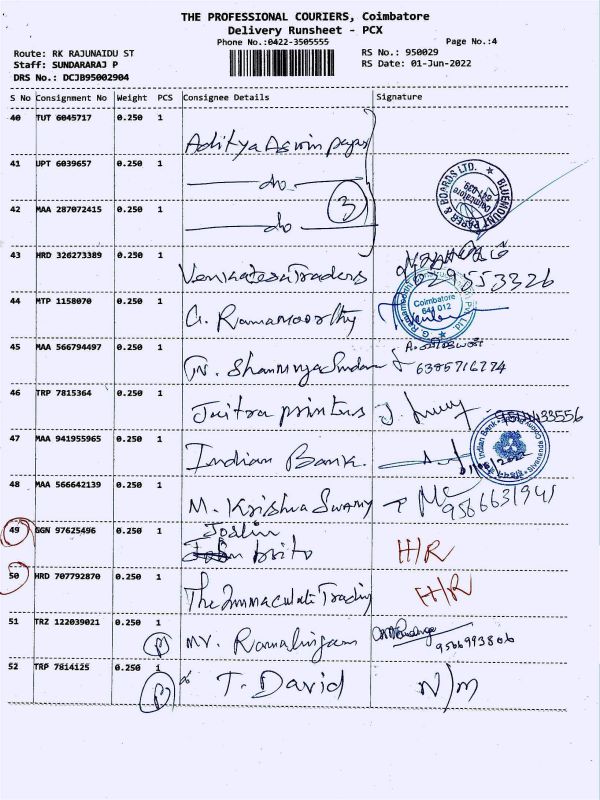 THE PROFESSIONAL COURIERS, Coimbatore
Delivery Runsheet - PCX
Phone No.:0422-3505555 Page No.:4
Route: RK RAJUNAIDU ST RS No.: 950029
Staff: SUNDARARAJ P RS Date: 01-Jun-2022
DRS No.: DCJB95002904
S No Consignment No Weight PCS Consignee Details Signature
40 TUT 6045717 0.250 1 Aditya Aswin paper
41 UPT 6039657 0.250 1 do
BLUEMOUNT PAPER & BOARDS LTD. Coimbatore 641 039.
42 MAA 287072415 0.250 1 do 3
43 HRD 326273389 0.250 1 Venkatesa Traders 629553326
44 MTP 1158070 0.250 1 G. Ramamoorthy
Coimbatore 641 012
45 MAA 566794497 0.250 1 6385716774
46 TRP 7815364 0.250 1 Jaitra printers
47 MAA 941955965 0.250 1 Indian Bank.
Indian Bank
48 MAA 566642139 0.250 1 M. Krishna Swamy 9566631941
49 GGN 97625496 0.250 1 Joslin brito H/R
50 HRD 707792870 0.250 1 The Immaculate Trading H/R
51 TRZ 122039021 0.250 1 Mr. Ramalingam 9566993806
52 TRP 7814125 0.250 1 T. David N/M